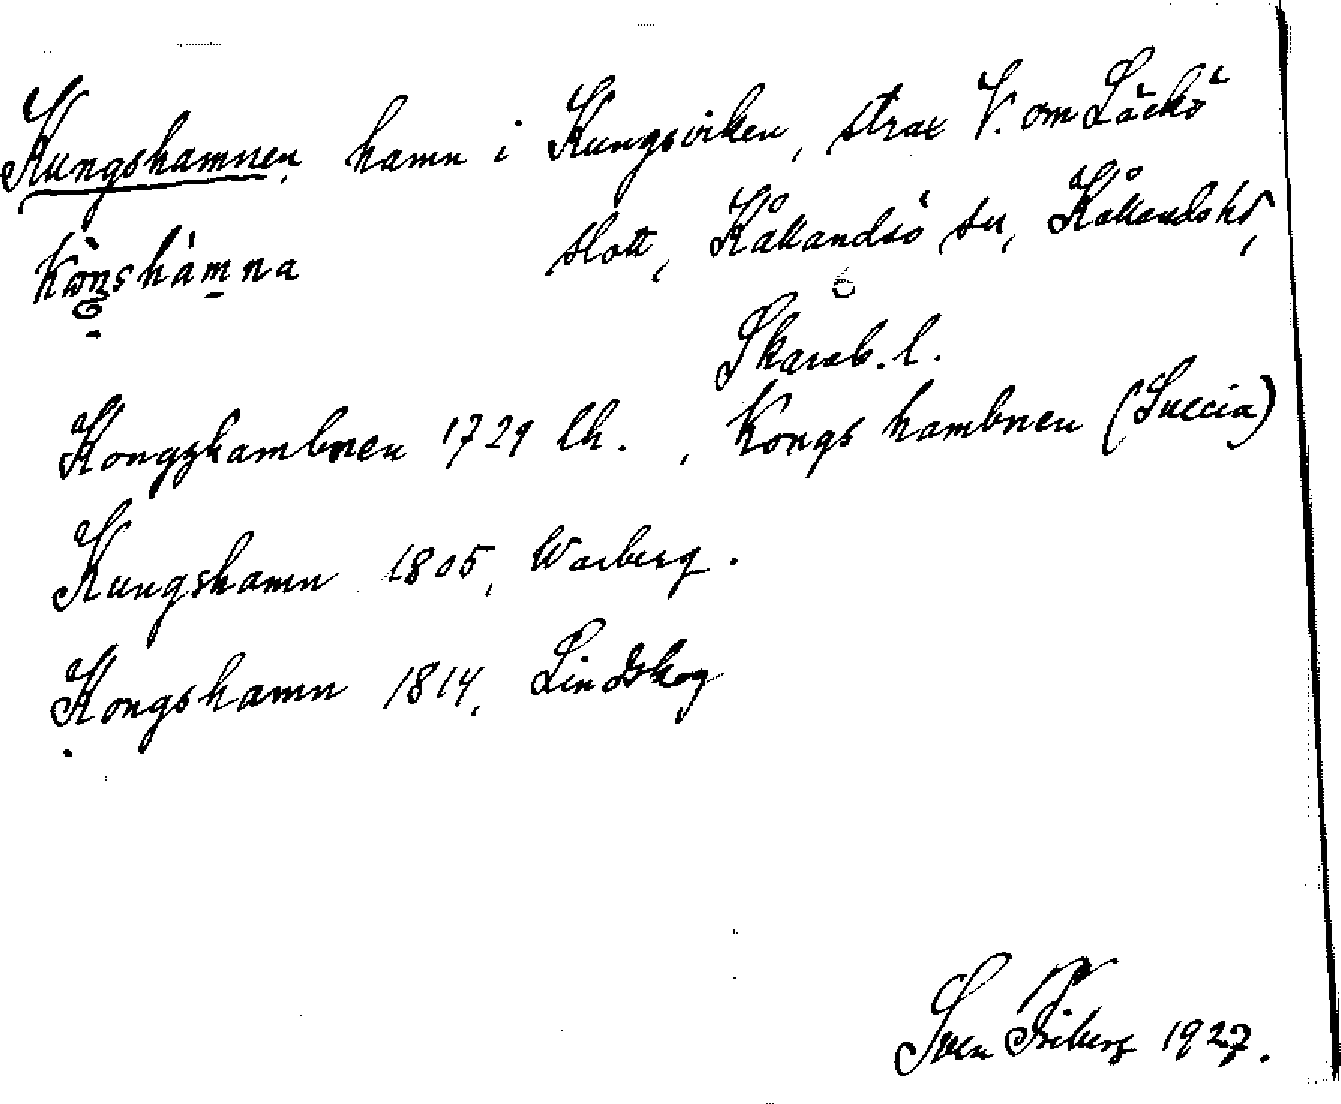 Kungshamnen hamn i Kungsviken, strax V. om Läckö
slott, Kållandsö sn, Kållands hd,
Skarab. l.
Kongzhambnen 1729 lh. , Kongs hambnen (Suecia)
Kungshamn 1805, Warberg.
Kongshamn 1814, Lindskog
Sven Friberg 1927.